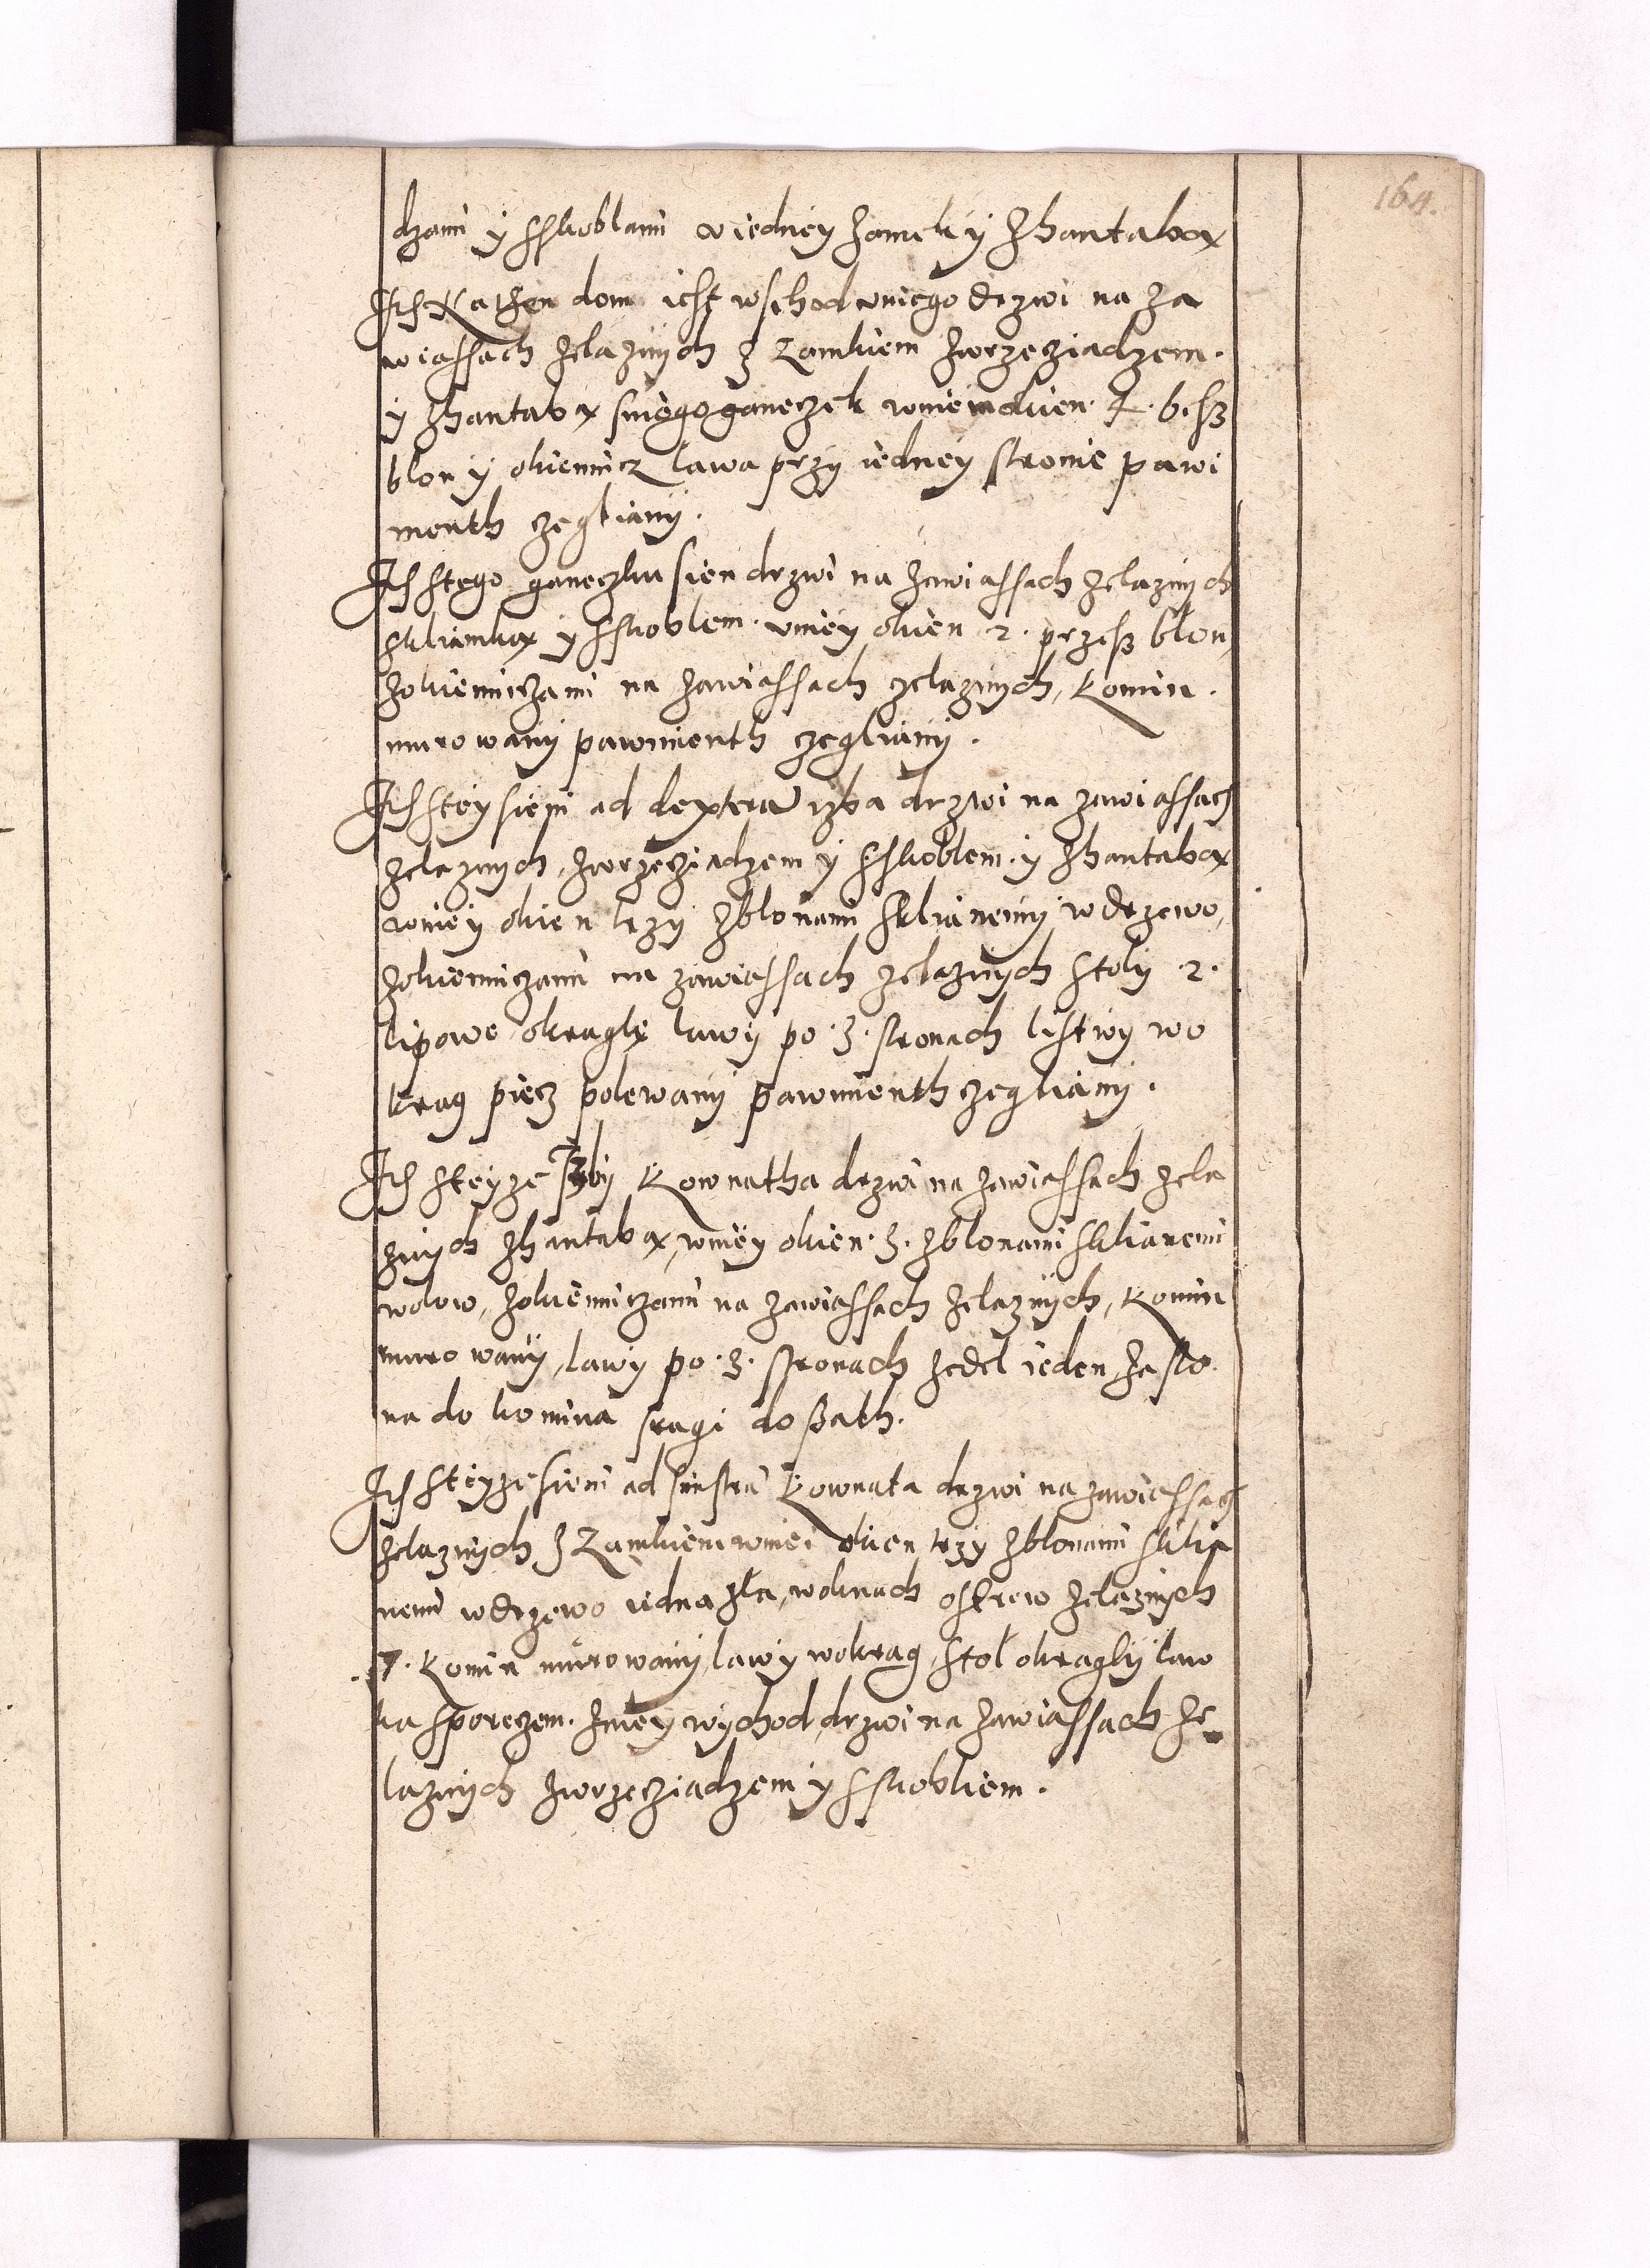 164.
dzami y sskoblami v iedney zamek y zhantabą
Ite Na then dom iest wschod v niego drzwi na za
wiassach zelaznych z zamkiem zwrzecziadzem.
y zhantabą s niego ganeczek w niem okien 4. besz
blon y okiennicz lawa przy iedney stronie pawi
menth czegliany.
Ite s tego ganeczku sien drzwi na zawiassach zelaznych
s kliamką y sskoblem. v niey okien 2. przesz blon,
zokienniczami na zawiassach zelaznych, komin.
murowany pawimenth czegliany.
Ite s tey sieni ad dextera izba drzwi na zawiassach
zelaznych, zwrzecziadzem y sskoblem. y zhantabą
w niey okien trzy zblonami sklianemy w drzewo,
zokienniczami na zawiassach zelaznych stoly 2.
lipowe okragle lawy po 3. stronach listwy wo
krag piecz polewany pawimenth czegliany.
Ite s teyze Izby Kownatha drzwi na zawiassach zela
znych zhantabą, w niey okien 3. zblonami sklianemi
w olow, zokienniczami na zawiassach zelaznych, komin
murowany, lawy po 3. stronach zedel ieden zaslo
na do komina sragi do szath.
Ite s teyze sieni ad sinistra Kownata drzwi na zawiassach
zelaznych z zamkiem w niei okien trzy zblonami sklia
nemi w drzewo iedna zla, w oknach ostrew zelaznych
7. komin murowany, lawy wokrag, stol okragly law
ka sporeczem. z niey wychod, drzwi na zawiassach ze
laznych zwrzecziadzem y sskobliem.